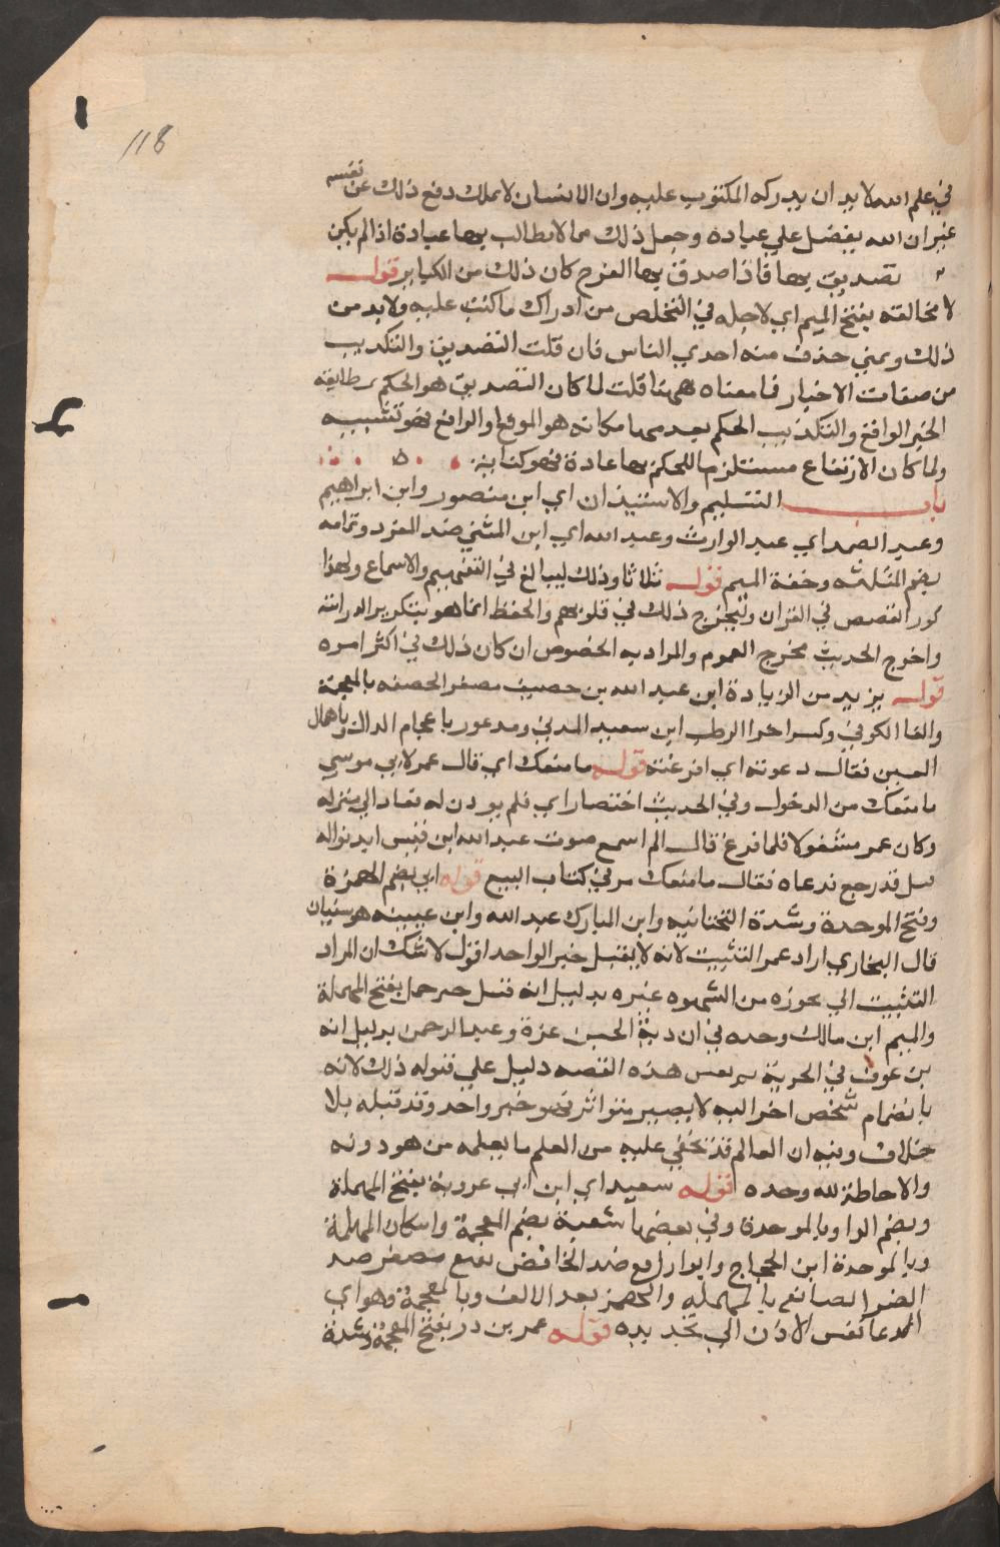 118
في علم الله لا بد ان يدركه المكتوب عليه وان الانسان لا يملك دفع ذلك عن نفسه
غير ان الله يفضل علي عباده وجعل ذلك مما لا يطالب بها عباده اذا لم يكن
تصديق بها فاذا صدق بها الفرج كان ذلك من الكباير قوله
لا محالة بفتح الميم اي لا حيلة في التخلص من ادراك ما كتب عليه ولا بد من
ذلك وتمني حذف منه احدي التاء فان قلت التصديق والتكذيب
من صفات الاخبار فما معناه ههنا قلت لما كان التصديق هو الحكم بمطابقة
الخبر الواقع والتكذيب الحكم بعدمها فكانه هو الموقع او الواقع فهو تشبيه
ولما كان الايقاع مستلزما للحكم بها عادة فهو كناية
باب التسليم والاستيذان اي ابن منصور وابن ابراهيم
وعبد الصمد اي عبد الوارث وعبد الله اي ابن المثني ضد المفرد وثمامه
بضم المثلثه وخفة الميم قوله ثلاثا وذلك ليبالغ في التفهيم والاسماع ولهذا
كرر القصص في القران وليخرج ذلك في قلوبهم والحفظ انما هو بتكرير الدراسة
واخرج الحديث مخرج العموم والمراد به الخصوص ان كان ذلك في اكثر امره
قوله يزيد من الزيادة ابن عبد الله بن خصيف مصغر الخصفه بالمعجمة
والفا الكوفي وبسر اخو الرطب ابن سعيد المدني ومدعور باعجام الذال وباهمال
العين فقال دعوته اي افزعته قوله ما منعك اي قال عمر لابي موسي
ما منعك من الدخول وفي الحديث اختصار اي فلم يوذن له فعاد الي منزله
وكان عمر مشغولا فلما فرغ قال الم اسمع صوت عبد الله ابن قيس ايذنوا له
قيل قد رجع فدعاه فقال ما منعك مر في كتاب البيع قوله ابي بضم الهمزة
وفتح الموحدة وشدة التحتانيه وابن المبارك عبد الله وابن عيينه هو سفيان
قال البخاري اراد عمر التثبيت لانه لا يقبل خبر الواحد اقول لا شك ان المراد
التثبيت الي يجوزه من الشهوه غيره بدليل انه قبل خبر حمل بفتح المهملة
والميم ابن مالك وحده في ان دية الجنين غرة وعبد الرحمن بدليل انه
بن عوف في الجزية بنفس هذه القصه دليل علي قبوله ذلك لانه
بانضمام شخص اخر اليه لا يصير متواترا فهو خبر واحد وقد قبله بلا
خلاف وفيه ان العالم قد يخفي عليه من العلم ما يعلمه من هو دونه
والاحاطة لله وحده قوله سعيد اي ابن ابي عروبة بفتح المهملة
وبضم الرا وبالموحدة وفي بعضها شعبة بضم المعجمة واسكان المهملة
وبالموحدة ابن الحجاج وابو رافع ضد الخافض نفيع مصغر ضد
الضر الصائغ بالمهملة والهمز بعد الالف وبالمعجمة وهو اي
الدعا نفس الاذن الي تجديده قوله عمر بن ذر بفتح المعجمة وشدة